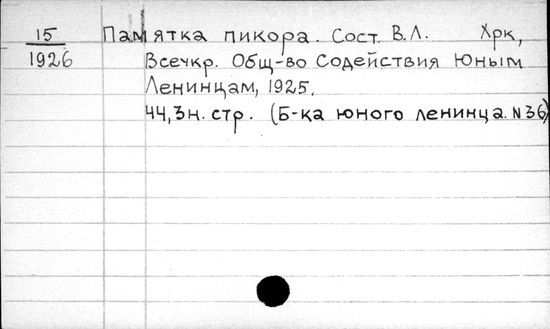 15 Памятка пикора. Сост. В.Л. Хрк,
1926 Всечкр. Общ-во Содействия Юным
Ленинцам, 1925.
44,3н. стр. (Б-ка юного ленинца. N36)